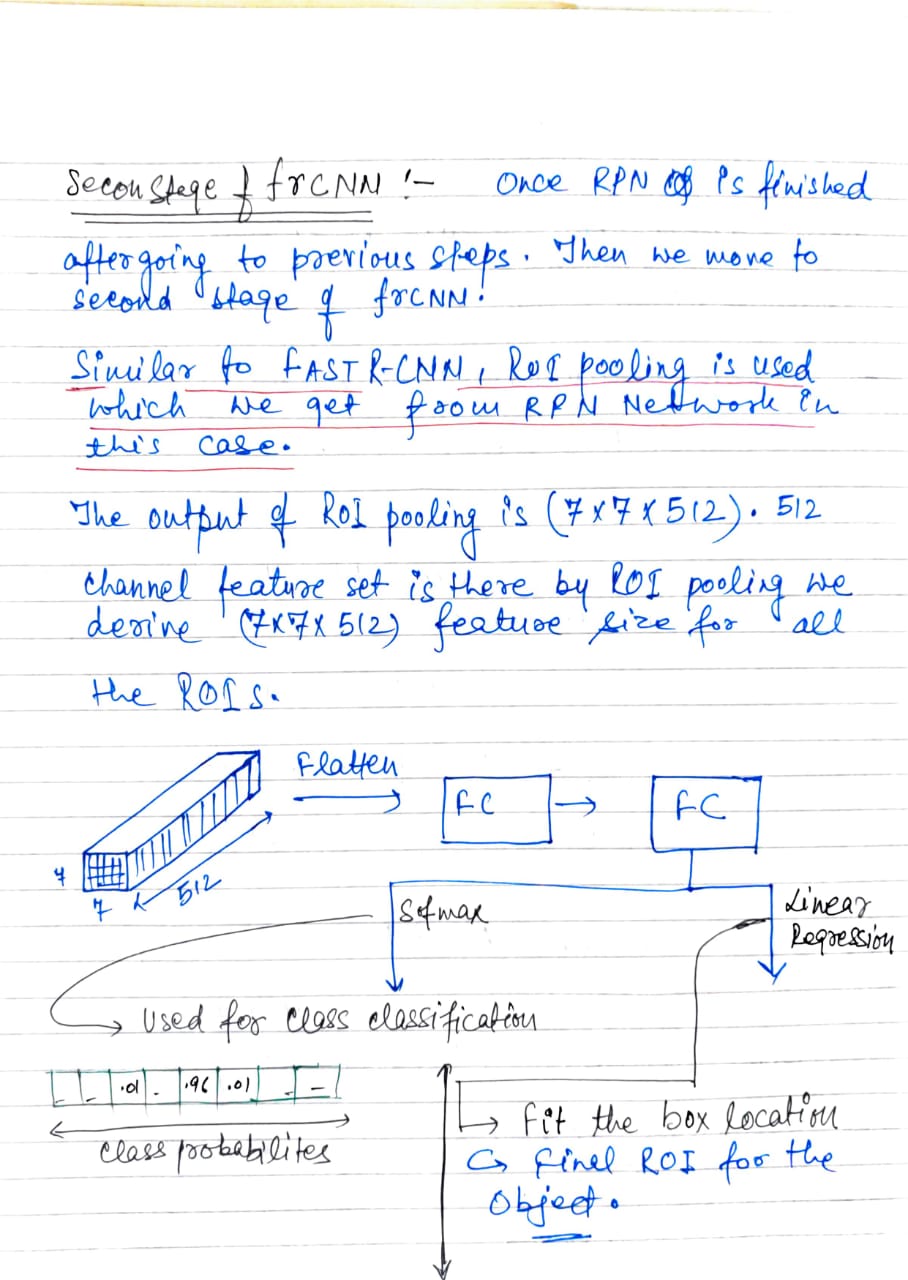 Secon Stege of frCNN :- Once RPN is finished
after going to previous steps. Then we move to
second stage of frCNN.
Similar to FAST R-CNN, RoI pooling is used
which we get from RPN Network in
this case.
The output of ROI pooling is (7x7x512). 512
channel feature set is there by ROI pooling we
derive (7x7x512) feature size for all
the ROIs.
Flatten
FC → FC
7
7
512
Sofmax
Linear
Regression
Used for class classification
- - .01 - .96 .01 - -
class probabilites
Fit the box location
Finel ROI for the
Object.